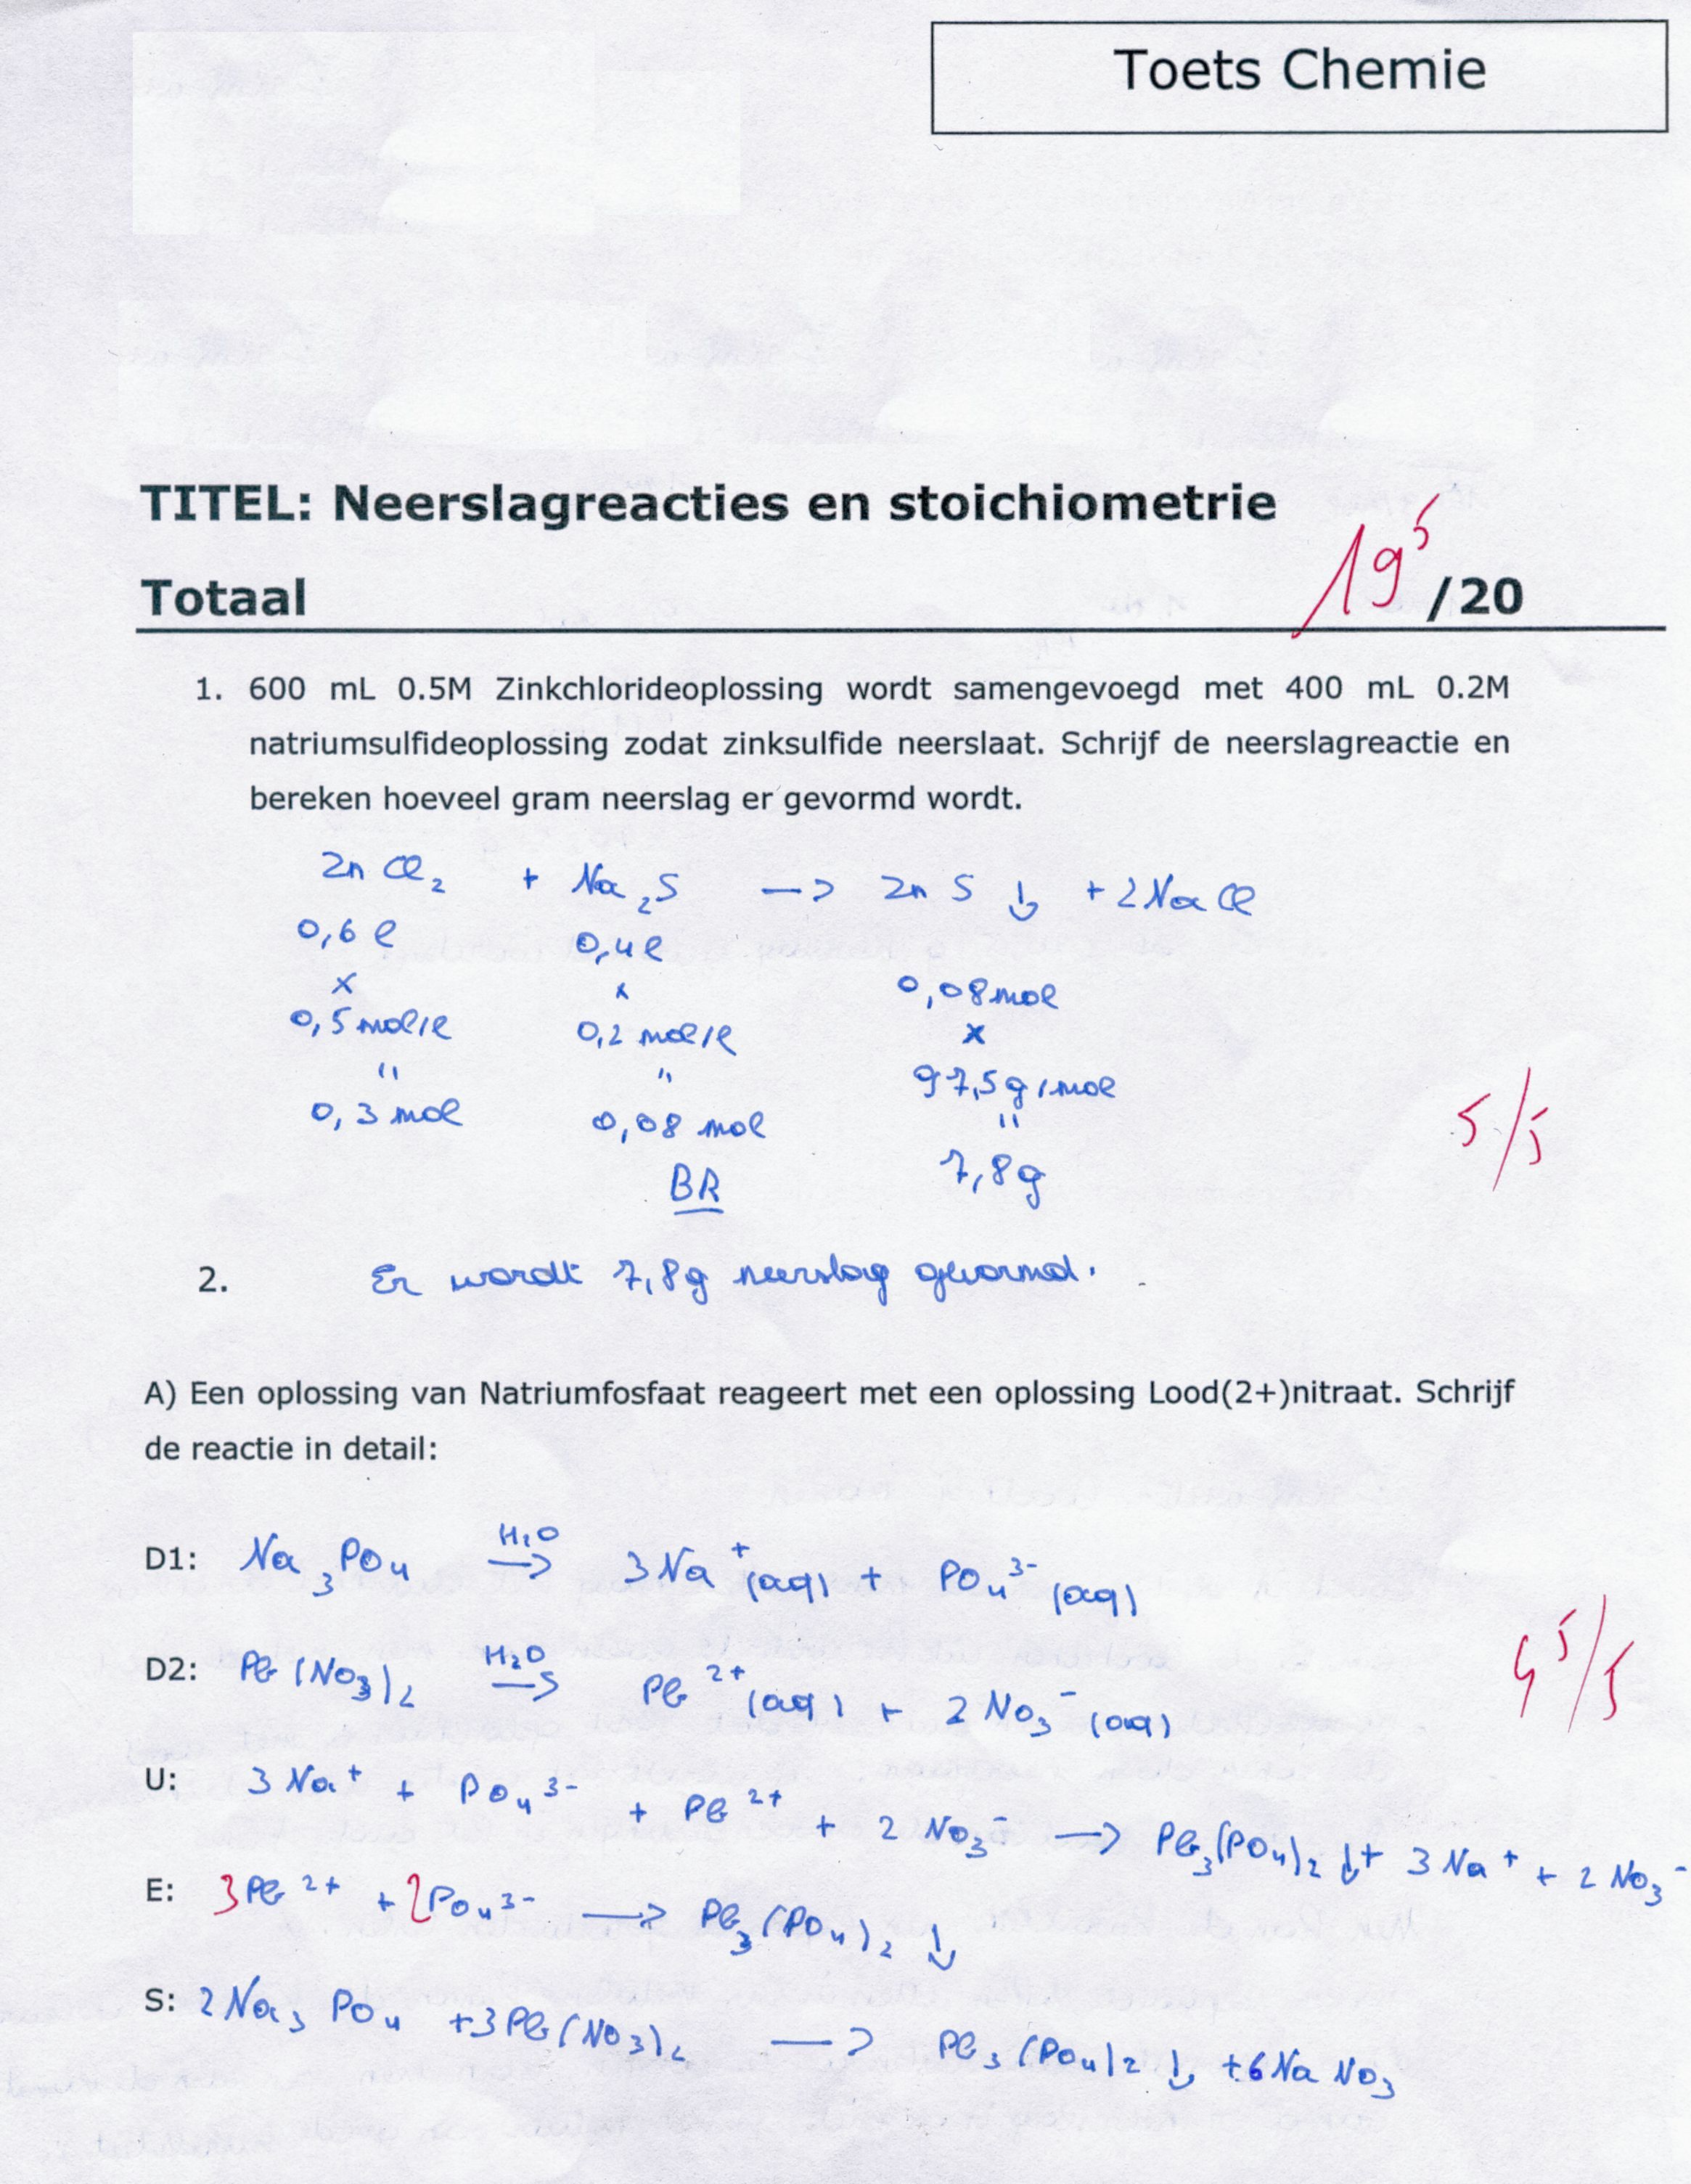 Toets Chemie
TITEL: Neerslagreacties en stoichiometrie
Totaal 19⁵ /20
1. 600 mL 0.5M Zinkchlorideoplossing wordt samengevoegd met 400 mL 0.2M
natriumsulfideoplossing zodat zinksulfide neerslaat. Schrijf de neerslagreactie en
bereken hoeveel gram neerslag er gevormd wordt.
ZnCl₂ + Na₂S —> ZnS ↓ + 2NaCl
0,6 l 0,4 l
x x 0,08 mol
0,5 mol/l 0,2 mol/l x
" " 97,5 g/mol
0,3 mol 0,08 mol "
BR 7,8 g
5/5
2. Er wordt 7,8g neerslag gevormd.
A) Een oplossing van Natriumfosfaat reageert met een oplossing Lood(2+)nitraat. Schrijf
de reactie in detail:
D1: Na₃PO₄ —H₂O—> 3Na⁺(aq) + PO₄³⁻(aq)
D2: Pb(NO₃)₂ —H₂O—> Pb²⁺(aq) + 2NO₃⁻(aq)
4⁵/5
U: 3Na⁺ + PO₄³⁻ + Pb²⁺ + 2NO₃⁻ —> Pb₃(PO₄)₂ ↓ + 3Na⁺ + 2NO₃⁻
E: 3Pb²⁺ + 2PO₄³⁻ —> Pb₃(PO₄)₂ ↓
S: 2Na₃PO₄ + 3Pb(NO₃)₂ —> Pb₃(PO₄)₂ ↓ + 6NaNO₃